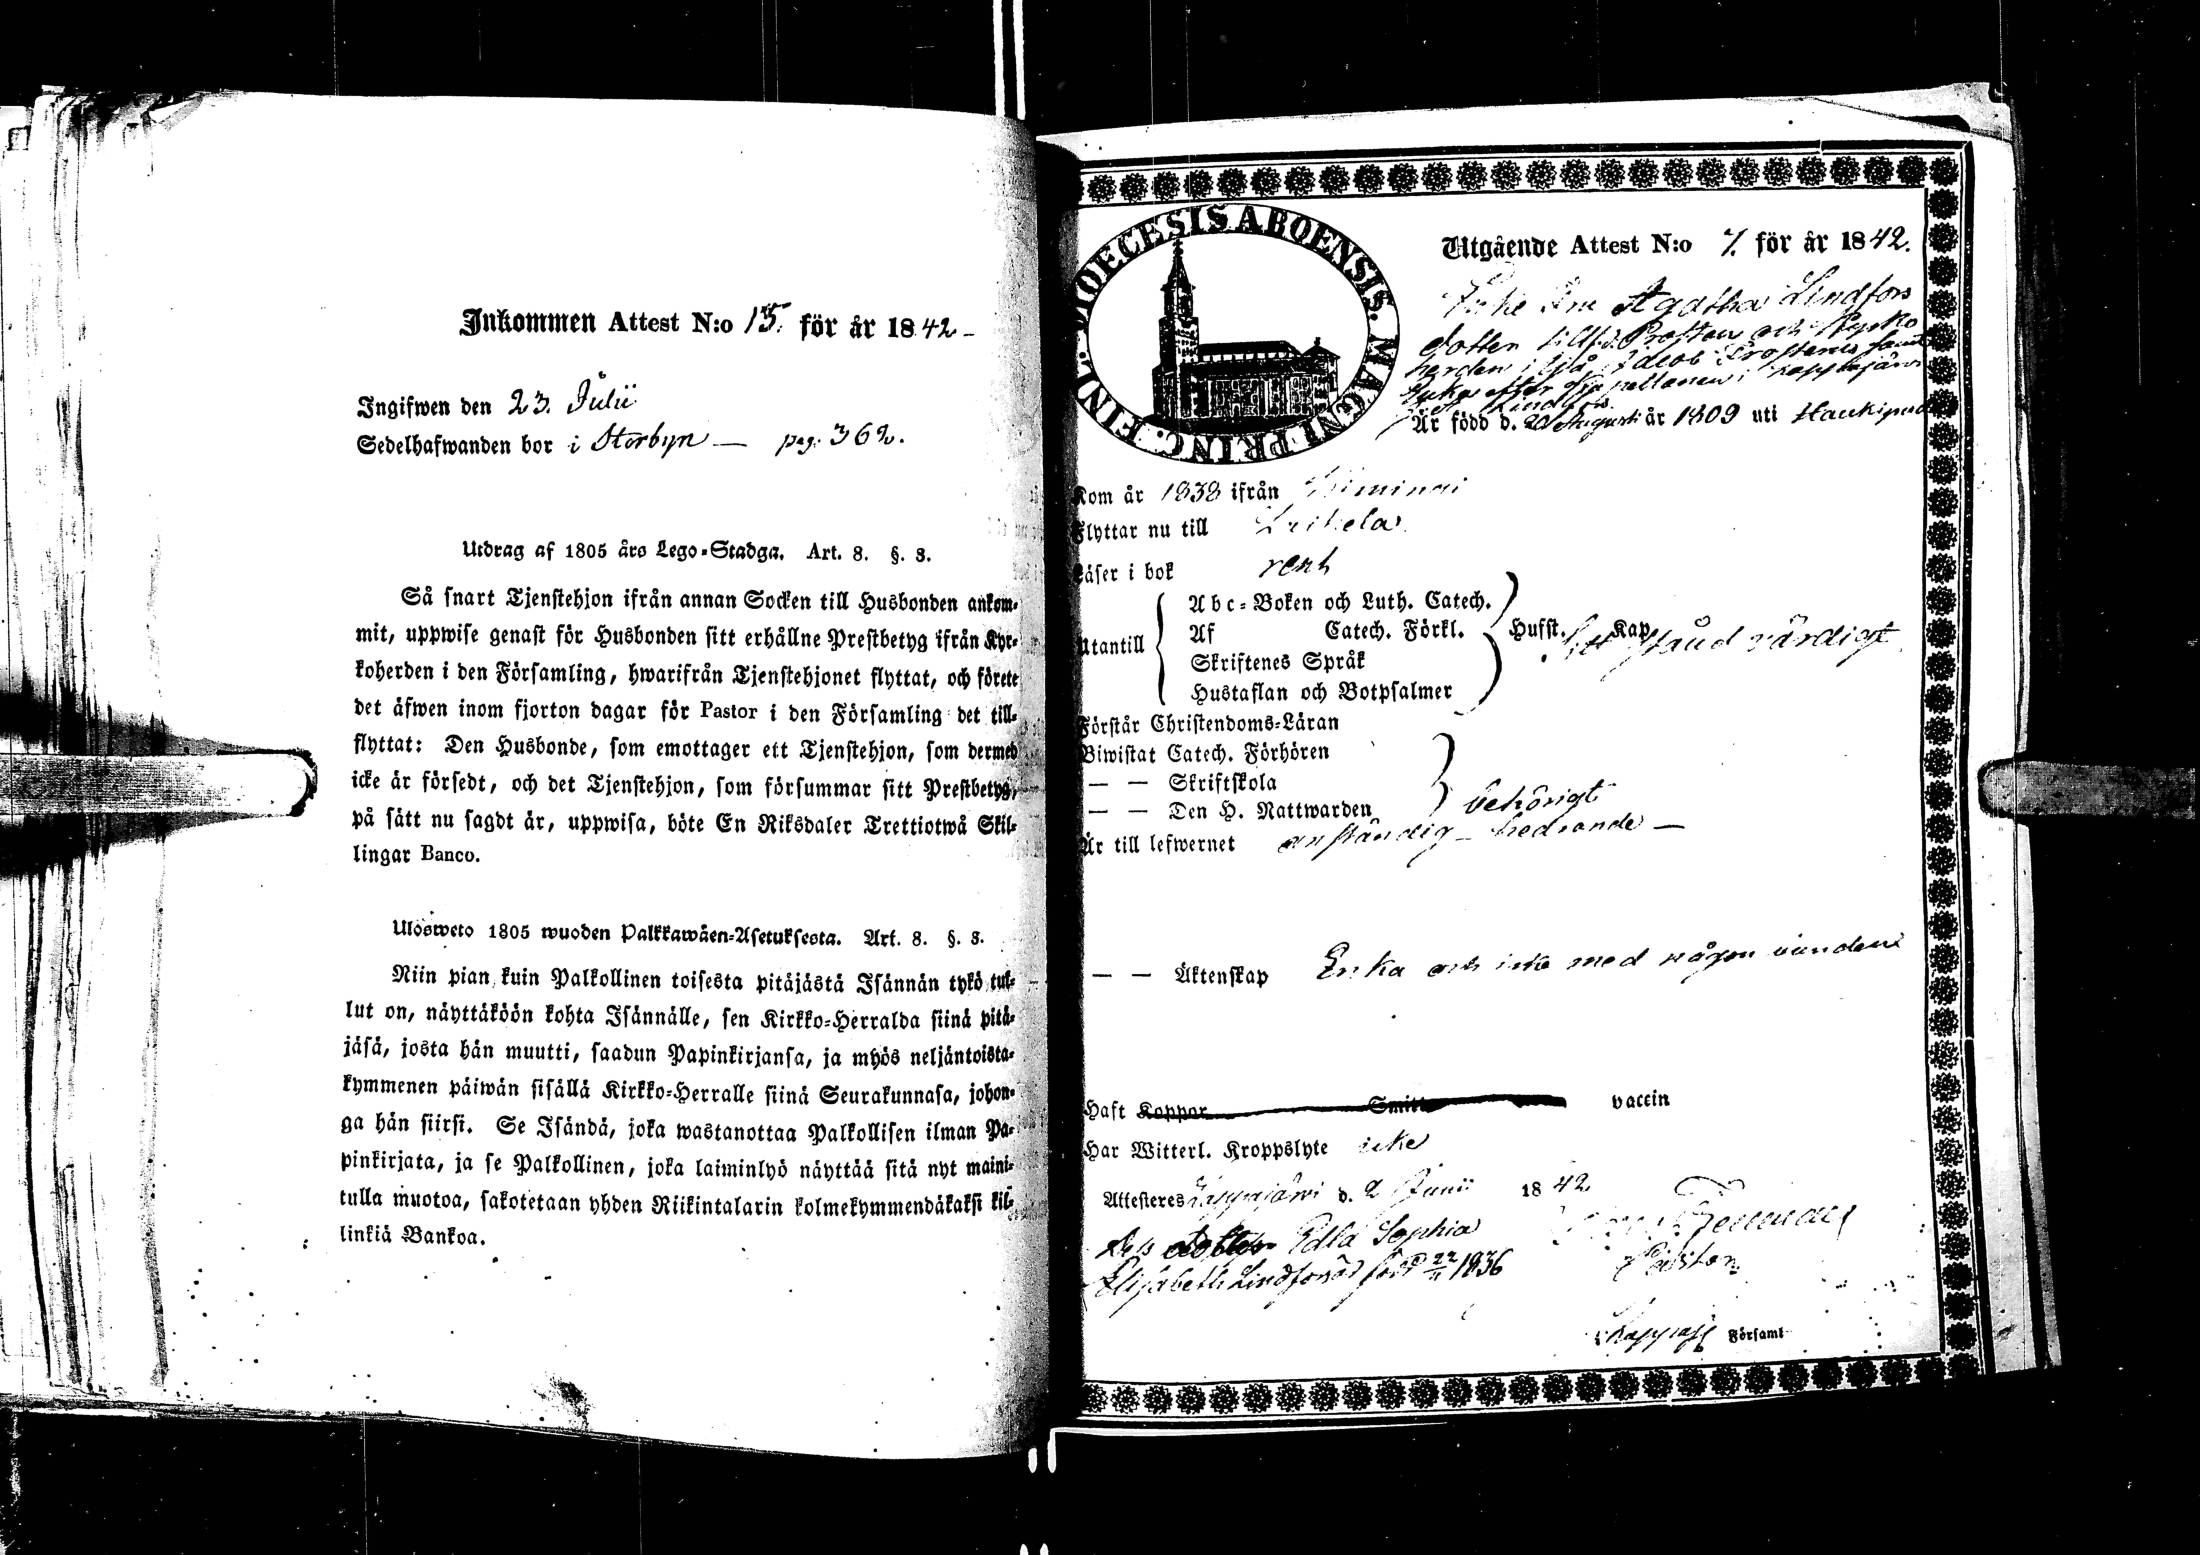 Inkommen Attest N:o 15. för år 1842 -
Ingifwen den 23. Julii
Sedelhafwanden bor i Storbyn — pag. 362.
Utdrag af 1805 års Lego-Stadga. Art. 8. §. 8.
Så snart Tjenstehjon ifrån annan Socken till Husbonden ankom-
mit, uppwise genast för Husbonden sitt erhållne Prestbetyg ifrån Kyr-
koherden i den Församling, hwarifrån Tjenstehjonet flyttat, och förete
det äfwen inom fjorton dagar för Pastor i den Församling det till-
flyttat: Den Husbonde, som emottager ett Tjenstehjon, som dermed
icke är försedt, och det Tjenstehjon, som försummar sitt Prestbetyg,
på sätt nu sagdt är, uppwisa, böte En Riksdaler Trettiotwå Skil-
lingar Banco.
Ulosweto 1805 wuoden Palkkawäen-Asetuksesta. Art. 8. §. 8.
Niin pian kuin Palkollinen toisesta pitäjästä Isännän tykö tul-
lut on, näyttäköön kohta Isännälle, sen Kirkko-Herralda siinä pitä-
jäsä, josta hän muutti, saadun Papinkirjansa, ja myös neljäntoista-
kymmenen päiwän sisällä Kirkko-Herralle siinä Seurakunnasa, johon-
ga hän siirsi. Se Isändä, joka wastanottaa Palkollisen ilman Pa-
pinkirjata, ja se Palkollinen, joka laiminlyö näyttää sitä nyt maini-
tulla muotoa, sakotetaan yhden Riikintalarin kolmekymmendäkaksi kil-
linkiä Bankoa.
DIOECESIS ABOENSIS. MAGNI PRINC. FINL.
Utgående Attest N:o 7. för år 1842.
Agatha Lindfors
dotter till Prosten och Kyrko
herden i Ijå Jacob samt
Enka efter Kapellanen i Lappajärvi
Är född d. 20 Augusti år 1809 uti Haukipudas
Kom år 1838 ifrån Kiminki
Flyttar nu till
Läser i bok rent
Utantill
Abc-Boken och Luth. Catech.
Af Catech. Förkl. Husst. Kap
Skriftenes Språk
Hustaflan och Botpsalmer
Sitt stånd värdigt
Förstår Christendoms-Läran
Biwistat Catech. Förhören
— — Skriftskola
— — Den H. Nattwarden behörigt
Är till lefwernet anständig - hedrande —
— — Äktenskap Enka och icke med någon bunden
Haft Koppor Smitt vaccin
Har Witterl. Kroppslyte icke
Attesteres Lappajärvi d. 2 Junii 1842
Dess dotter Edla Sophia
Elisabeth Lindfors född 22/11 1836
Pastor
Församl